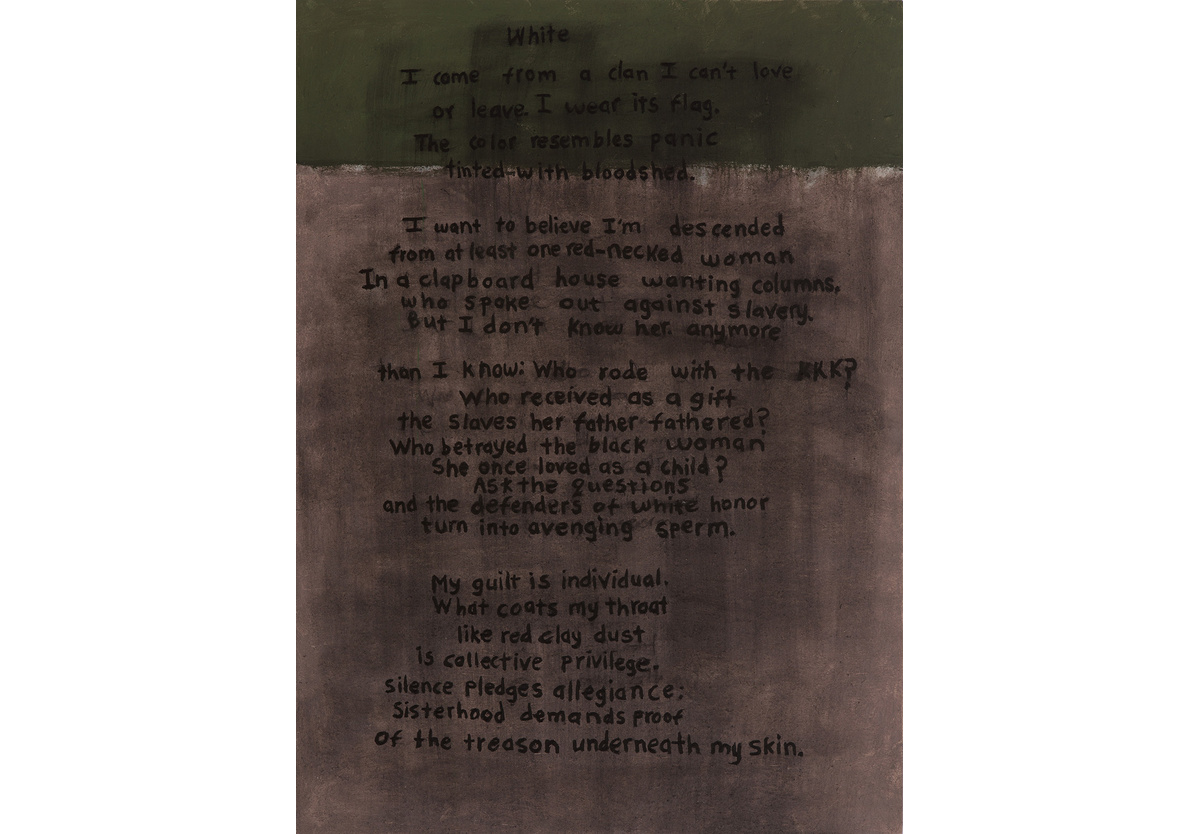 White
I come from a clan I can't love
or leave. I wear its flag.
The color resembles panic
tinted-with bloodshed.
I want to believe I'm descended
from at least one red-necked woman
In a clapboard house wanting columns,
who spoke out against slavery.
But I don't know her anymore
than I know: Who rode with the KKK?
Who received as a gift
the slaves her father fathered?
Who betrayed the black woman
She once loved as a child?
Ask the questions
and the defenders of white honor
turn into avenging sperm.
My guilt is individual.
What coats my throat
like red clay dust
is collective privilege.
Silence pledges allegiance;
Sisterhood demands proof
of the treason underneath my skin.